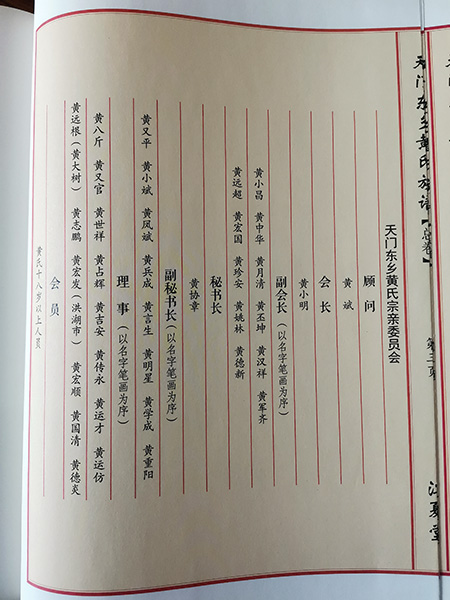 天门东乡黄氏族谱【总卷】
第三页
江夏堂
天门东乡黄氏宗亲委员会
顾问
黄斌
会长
黄小明
副会长（以名字笔画为序）
黄小昌 黄中华 黄月清 黄丕坤 黄汉祥 黄军齐
黄远超 黄宏国 黄珍安 黄姚林 黄德新
秘书长
黄协章
副秘书长（以名字笔画为序）
黄又平 黄小斌 黄凤斌 黄兵成 黄言生 黄明星 黄学成 黄重阳
理事（以名字笔画为序）
黄八斤 黄又官 黄世祥 黄占辉 黄吉安 黄传永 黄运才 黄运仿
黄远根（黄大树） 黄志鹏 黄宏发（洪湖市） 黄宏顺 黄国清 黄德炎
会员
黄氏十八岁以上人员